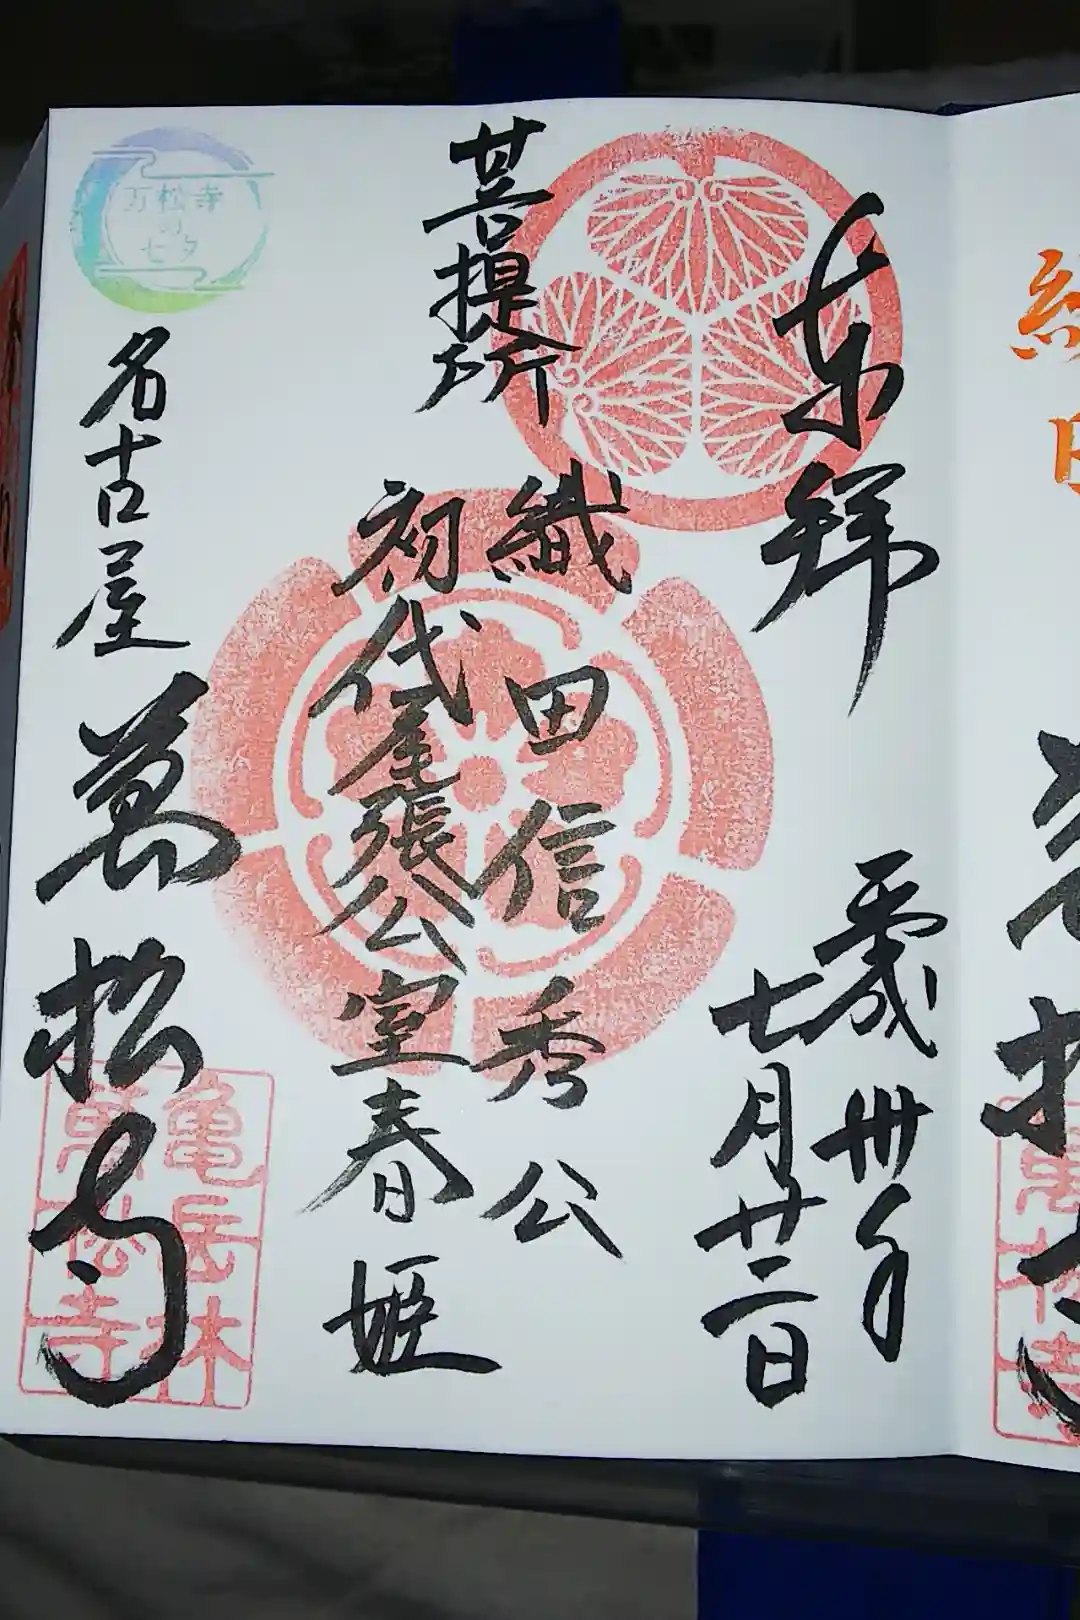 奉拝
平成卅年
七月廿二日
菩提所
織田信秀公
初代尾張公室春姫
名古屋 萬松寺
亀岳林
萬松寺
万松寺
の
七夕